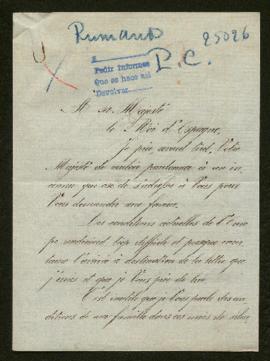 Rumania
25026
Pedir Informes
Que se hace así
Devolver
P.C.
A sa Majesté
le Roi d'Espagne,
Je prie avant tout, Votre
Majesté de vouloir pardonner à un in-
connu que ose de s'adresser à Vous pour
Vous demander une faveur.
Les conditions actuelles de l'Euro-
pe rendraient trop difficile et presque
l'envoi à destination de la lettre que
j'écris et que je Vous prie de lire
C'est inutile que je Vous parle des con-
ditions de ma famille dans ces mois de